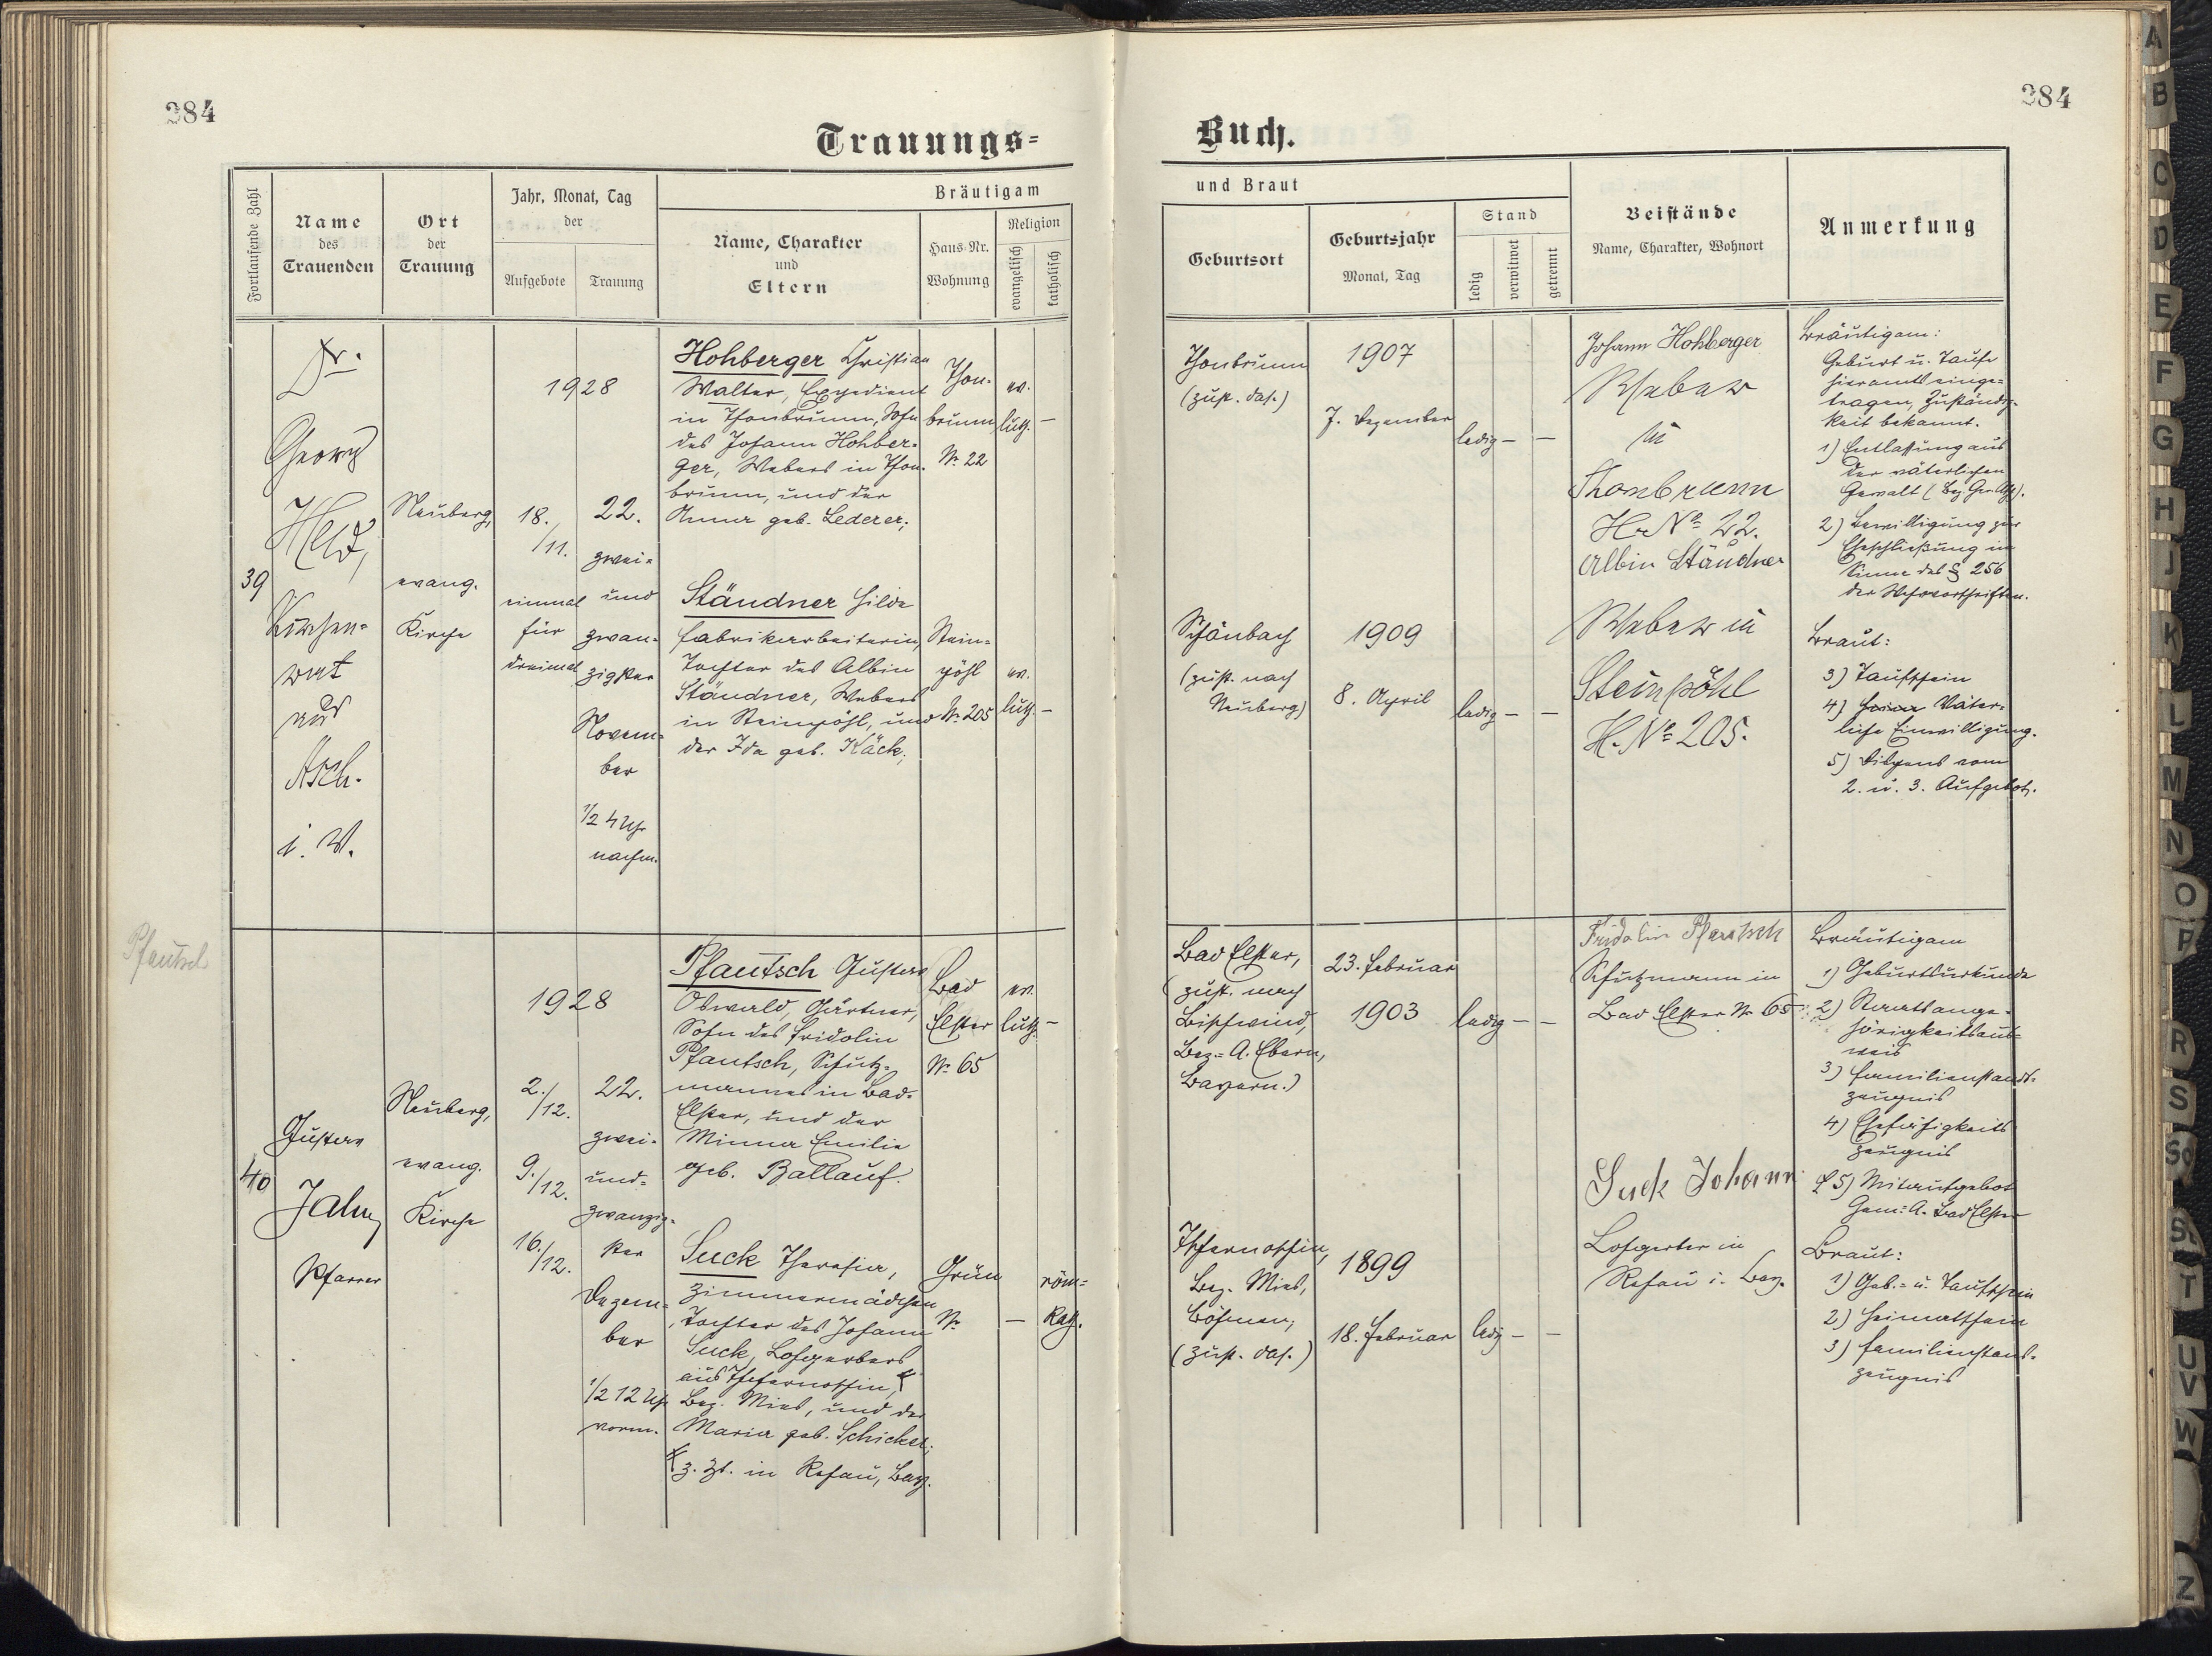 384
384
Trauungs=
Buch.
Fortlaufende Zahl
Name
des
Trauenden
Ort
der
Trauung
Jahr, Monat, Tag
der
Aufgebote
Trauung
Bräutigam
Name, Charakter
und
Eltern
Haus-Nr.
Wohnung
Religion
evangelisch
katholisch
und Braut
Geburtsort
Geburtsjahr
Monat, Tag
Stand
ledig
verwitwet
getrennt
Beistände
Name, Charakter, Wohnort
Anmerkung
39
Dr.
Georg
Held,
Kirchen=
rat
aus
Asch.
i. V.
Neuberg,
evang.
Kirche
1928
18.
/11.
einmal
für
dreimal
22.
zwei=
und
zwan=
zigster
Novem=
ber
1/2 4 Uhr
nachm.
Hohberger Christian
Walter, Expedient
in Thonbrunn, Sohn
des Johann Hohber=
ger, Webers in Thon=
brunn, und der
Anna geb. Lederer;
Thon=
brunn
Nr. 22
ev.
luth. –
Ständner Hilda
Fabrikarbeiterin,
Tochter des Albin
Ständner, Webers
in Steinpöhl, und
der Ida geb. Käck;
Stein=
pöhl
Nr. 205
ev.
luth. –
Thonbrunn
(zust. das.)
1907
7. Dezember
ledig – –
Schönbach
(zust. nach
Neuberg)
1909
8. April
ledig – –
Johann Hohberger
Weber
in
Thonbrunn
Hr Nº 22.
Albin Ständner
Weber in
Steinpöhl
H. Nº 205.
Bräutigam:
Geburt u. Taufe
hieramts einge=
tragen, Zuständig=
keit bekannt.
1) Entlassung aus
der väterlichen
Gewalt (Bez. Ger. Asch).
2) Bewilligung zur
Eheschließung im
Sinne des § 256
der Wehrvorschriften.
Braut:
3) Taufschein
4) Väter=
liche Einwilligung.
5) Dispens vom
2. u. 3. Aufgebot.
Pfautsch
40
Gustav
Jahn
Pfarrer
Neuberg,
evang.
Kirche
1928
2./
/12.
9.
/12.
16.
/12.
22.
zwei=
und=
zwanzig=
ster
Dezem=
ber
1/2 12 Uhr
vorm.
Pfautsch Gustav
Oswald, Gärtner,
Sohn des Fridolin
Pfautsch, Schutz=
mannes in Bad=
Elster, und der
Minna Emilie
geb. Ballauf.
Bad
Elster
Nr. 65
ev.
luth. –
Suck Theresia,
Zimmermädchen
Tochter des Johann
Suck, Lohgerbers
aus Tschernoschin,
Bez. Mies, und der
Maria geb. Schicker;
z. Zt. in Rehau, Bay.
Grün
Nr.
–
röm=
kath.
Bad Elster,
(zust. nach
Bischwind,
Bez.=A. Ebern,
Bayern.)
23. Februar
1903
ledig – –
Tschernoschin,
Bez. Mies,
Böhmen,
(zust. das.)
1899
18. Februar
ledig – –
Fridolin Pfautsch
Schutzmann in
Bad Elster Nr. 65
Suck Johann
Lohgerber in
Rehau i. Bay.
Bräutigam
1) Geburtsurkunde
2) Staatsange=
hörigkeitsaus=
weis
3) Familienstands=
zeugnis
4) Ehefähigkeits
zeugnis
5) Mitaufgebot
Gem: A. Bad Elster
Braut:
1) Geb.= u. Taufschein
2) Heimatschein
3) Familienstand=
zeugnis
A
B
C
D
E
F
G
H
J
K
L
M
N
O
P
R
S
Sch
St
T
U
V
W
Z